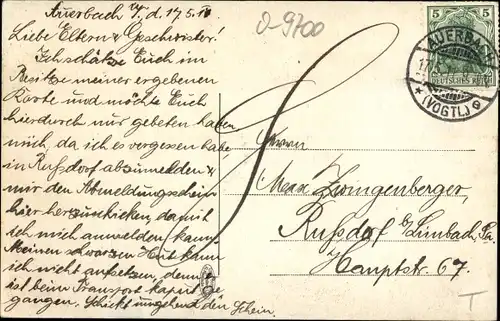 Auerbach Vgt. d. 17.5.10
Liebe Eltern & Geschwister!
Ich schätze Euch im
Besitze meiner ergebenen
Karte und möchte Euch
hierdurch nur gebeten haben
mich, da ich es vergesen habe,
in Rußdorf abzumelden &
mir den Abmeldungschein
hier her zu schicken, damit
ich mich anmelden kann.
Meinen schwarzen Hut kann
ich nicht aufsetzen, denn er
ist beim Transport kaput ge-
gangen. Schickt umgehend den Schein.
0-9700
5 5
DEUTSCHES REICH
AUERBACH
17.
* (VOGTL.)
Herrn
Max Zwingenberger,
Rußdorf b/Limbach, Sa.
Hauptstr. 67.
T